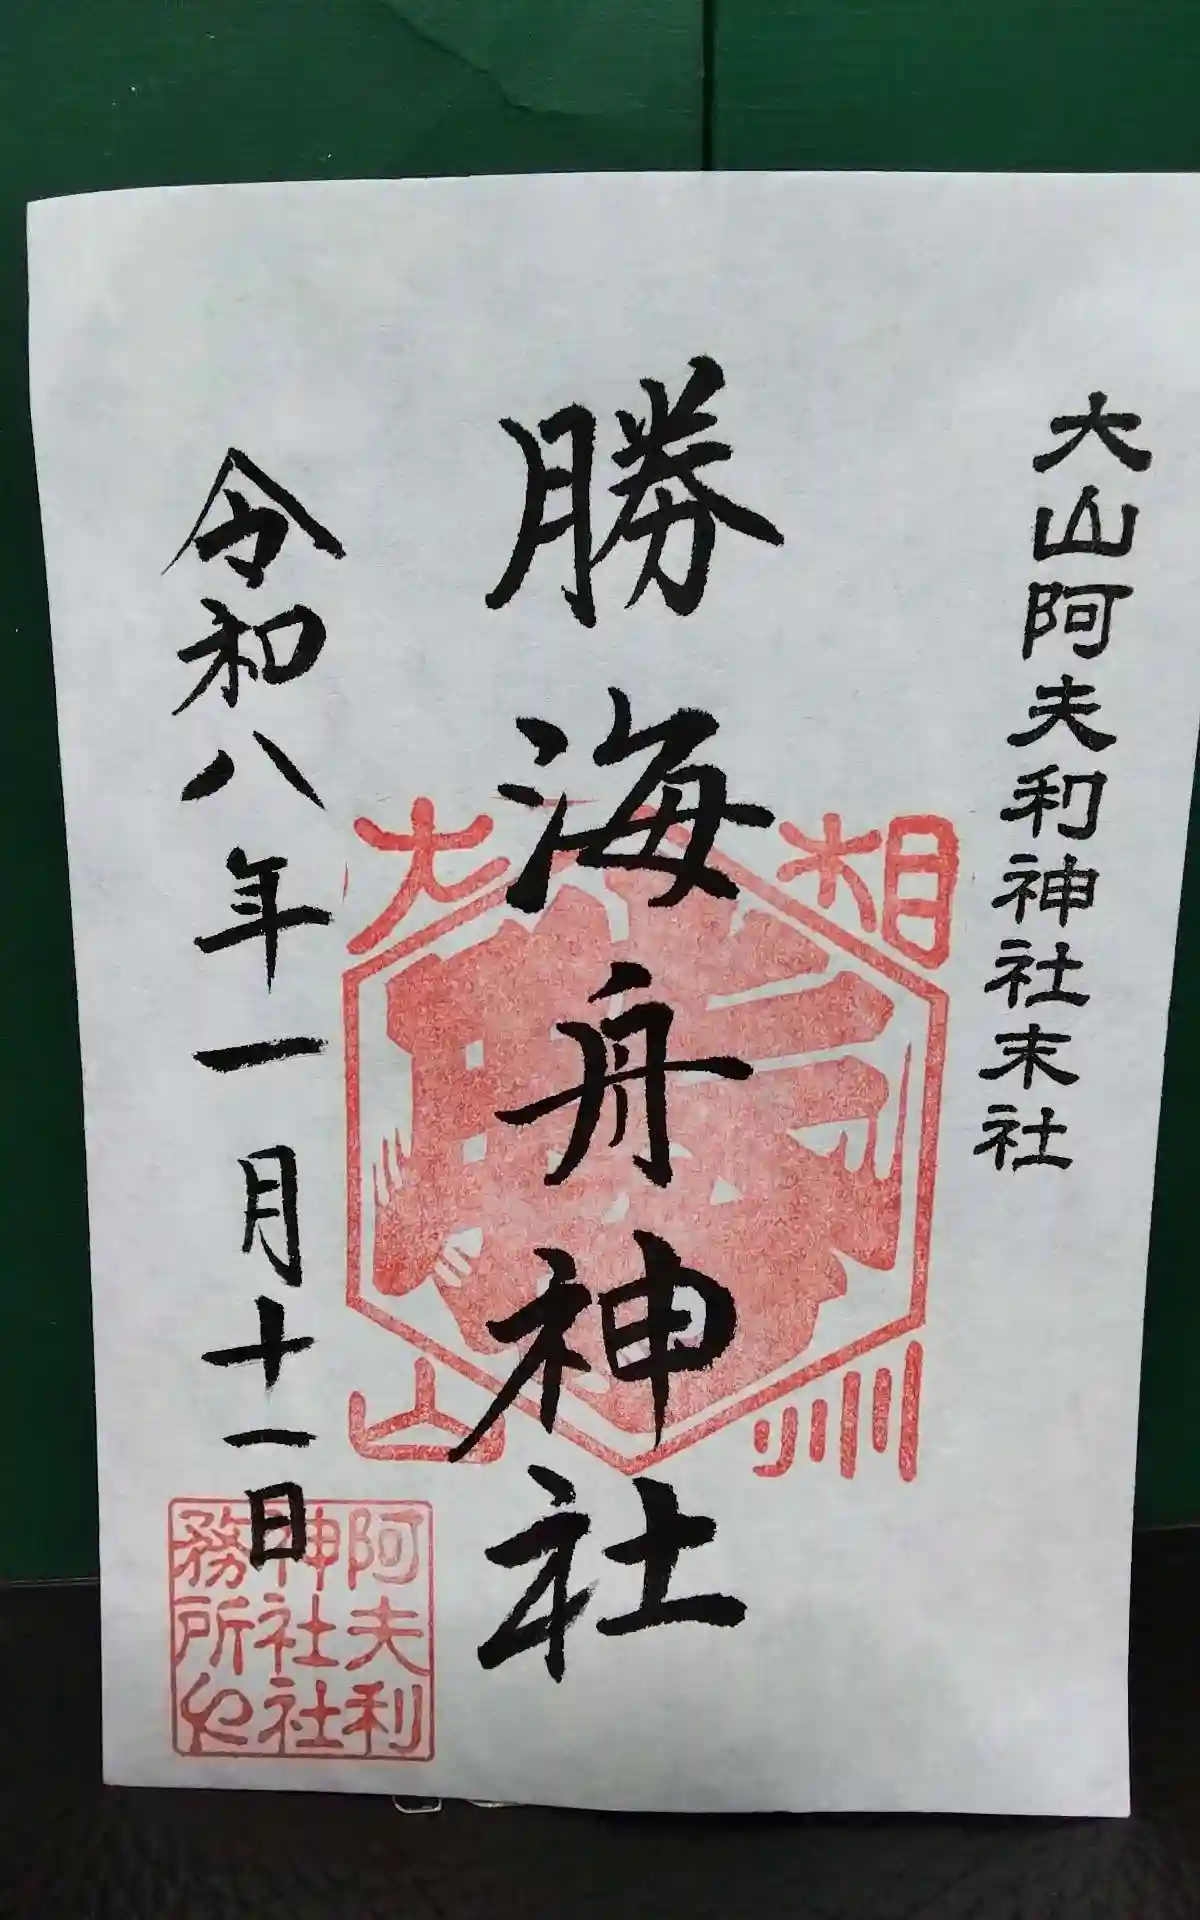 大山阿夫利神社末社
勝海舟神社
令和八年一月十一日
相州
大山
阿夫利
神社社
務所也